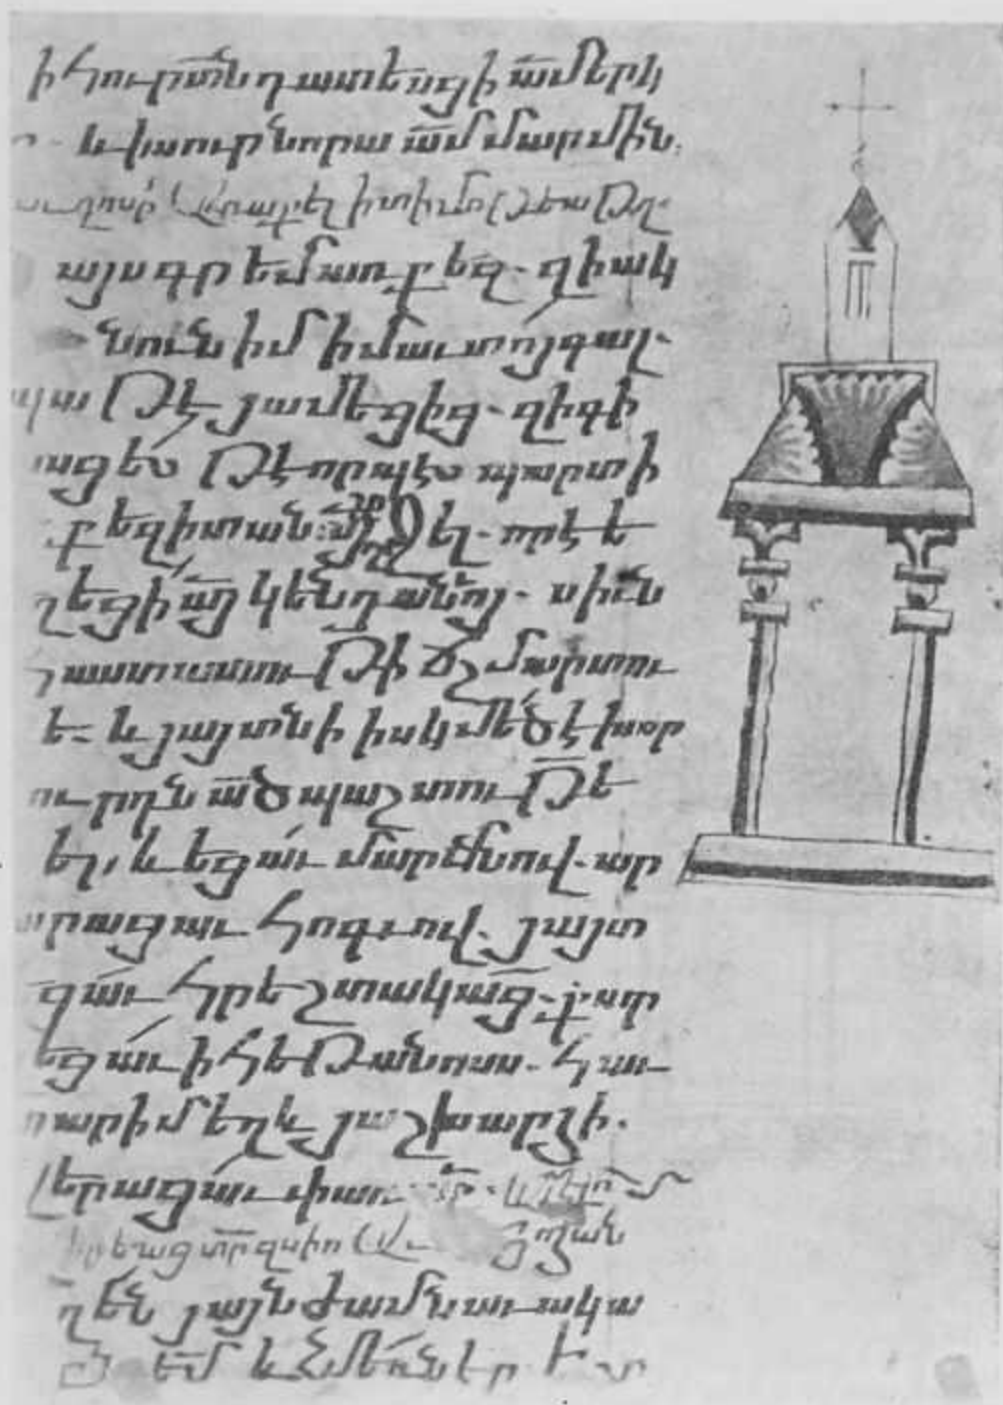 ի հուր տն դատեսցի ամ երկ
և ի սուր նորա ամ մարմին.
առաքել ի տիմոթեա թղ.
այս գրեմ առ քեզ. զի ակ
ն ունիմ իմաւտոյ գալ.
պա թէ յամեցից. զի գի
ասցես թէ որպէս պարտի
քեզ ի տան այ շրջել. որ է ե
ղեցի այ կենդանոյ. սիւն
հաստատութի ճշմարտու
ե. և յայտնի իսկ մեծ է խոր
ուրդն ածպաշտութե
եղ, և եցաւ մարմնով. ար
արացաւ հոգւով. յայտ
ցաւ հրեշտակաց. քատ
եցաւ ի հեթանոսս. հաւ
տարիմ եղև յաշխարհի.
վերացաւ փառ
ղեն յայնժամ նաւակա
եմ և